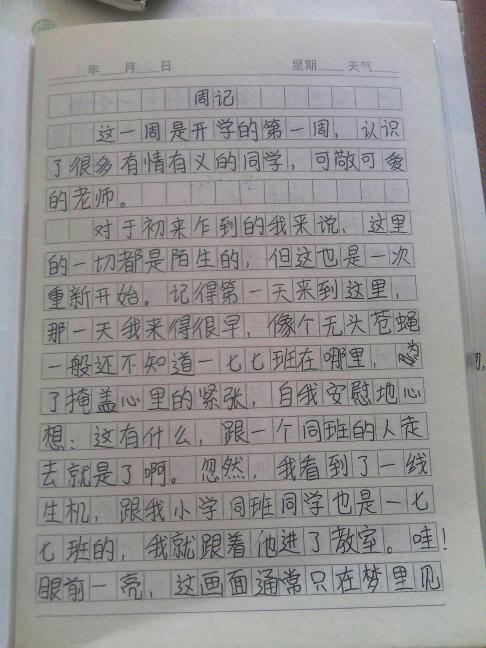 年 月 日 星期 天气
周记
这一周是开学的第一周，认识
了很多有情有义的同学，可敬可爱
的老师。
对于初来乍到的我来说，这里
的一切都是陌生的，但这也是一次
重新开始。记得第一天来到这里，
那一天我来得很早，像个无头苍蝇
一般还不知道一七七班在哪里，为
了掩盖心里的紧张，自我安慰地心
想：这有什么，跟一个同班的人走
去就是了啊。忽然，我看到了一线
生机，跟我小学同班同学也是一七
七班的，我就跟着他进了教室。哇！
眼前一亮，这画面通常只在梦里见